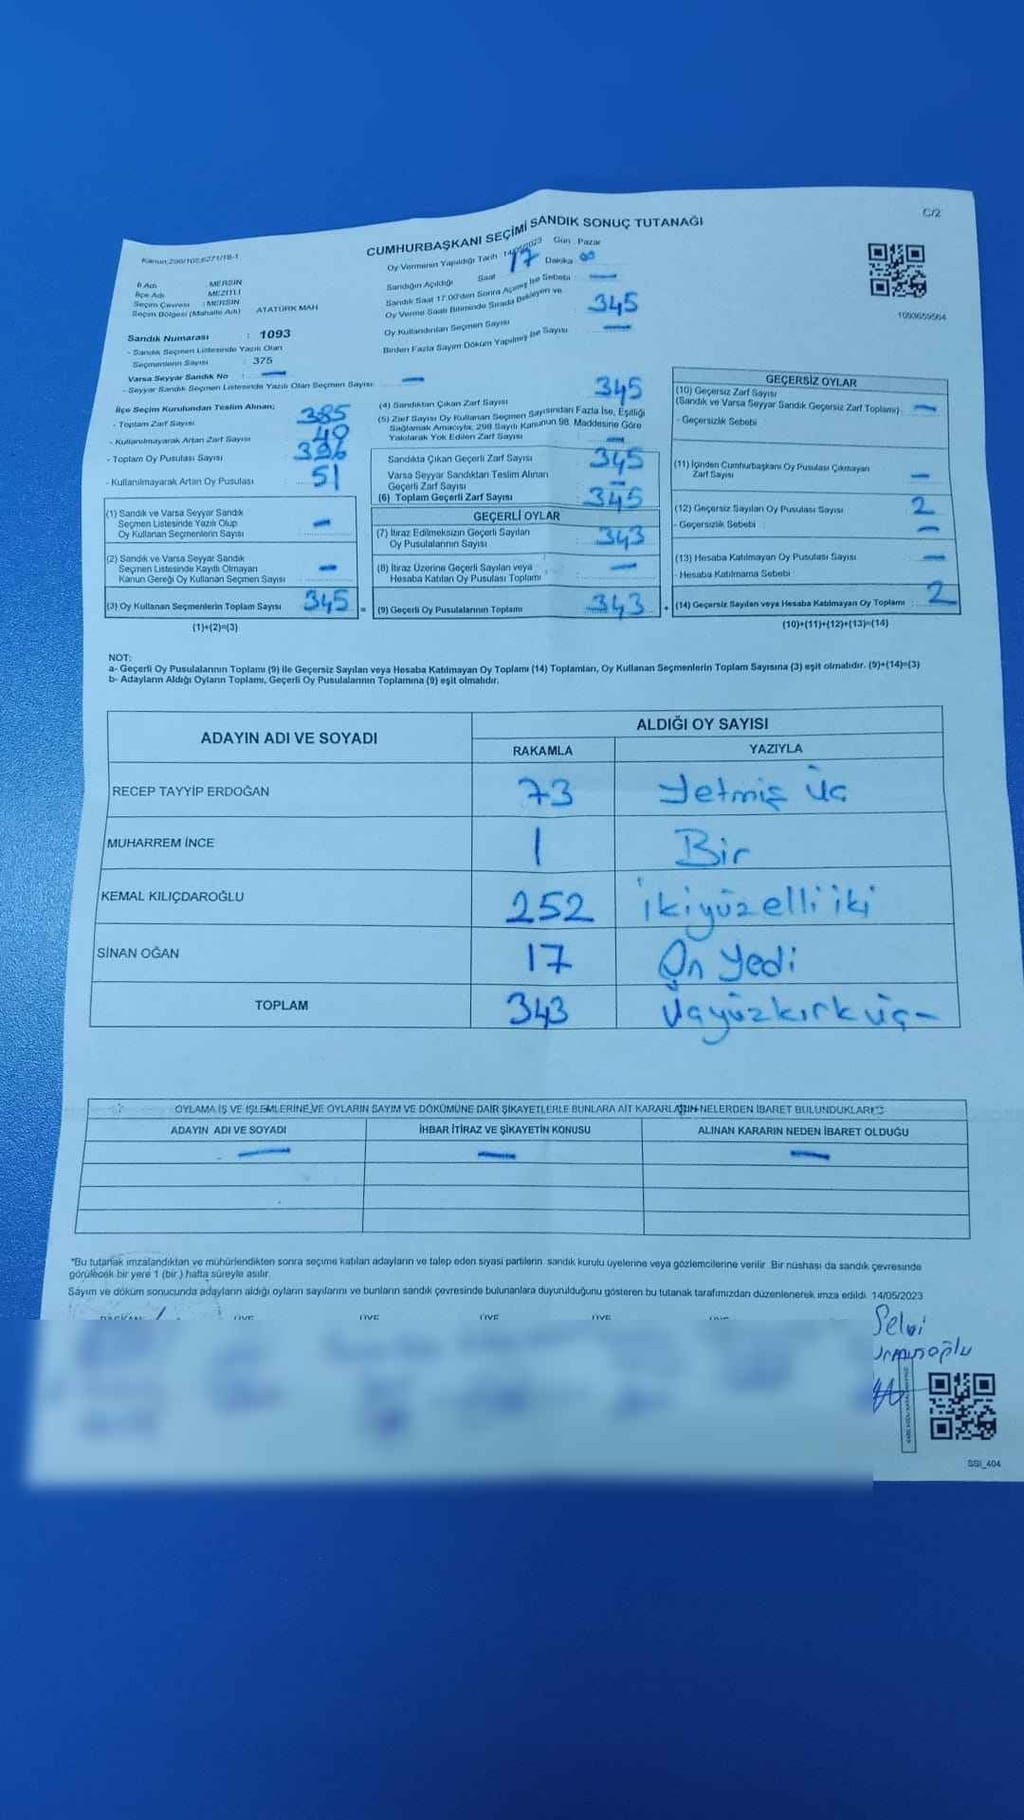 C/2
CUMHURBAŞKANI SEÇİMİ SANDIK SONUÇ TUTANAĞI
Oy Vermenin Yapıldığı Tarih 14/05/2023 Gün : Pazar
Sandığın Açıldığı Saat 17 Dakika 00
Sandık Saat 17:00'den Sonra Açılmış İse Sebebi : —
Oy Verme Saati Bitiminde Sırada Bekleyen ve
Oy Kullandırılan Seçmen Sayısı 345
Birden Fazla Sayım Döküm Yapılmış İse Sayısı —
İl Adı : MERSİN
İlçe Adı : MEZİTLİ
Seçim Çevresi : MERSİN
Seçim Bölgesi (Mahalle Adı) : ATATÜRK MAH
1093659564
Sandık Numarası : 1093
- Sandık Seçmen Listesinde Yazılı Olan
Seçmenlerin Sayısı : 375
Varsa Seyyar Sandık No : —
- Seyyar Sandık Seçmen Listesinde Yazılı Olan Seçmen Sayısı: —
İlçe Seçim Kurulundan Teslim Alınan;
- Toplam Zarf Sayısı 385
- Kullanılmayarak Artan Zarf Sayısı 40
- Toplam Oy Pusulası Sayısı 396
- Kullanılmayarak Artan Oy Pusulası 51
(1) Sandık ve Varsa Seyyar Sandık
Seçmen Listesinde Yazılı Olup
Oy Kullanan Seçmenlerin Sayısı —
(2) Sandık ve Varsa Seyyar Sandık
Seçmen Listesinde Kayıtlı Olmayan
Kanun Gereği Oy Kullanan Seçmen Sayısı —
(3) Oy Kullanan Seçmenlerin Toplam Sayısı 345 =
(1)+(2)=(3)
(4) Sandıktan Çıkan Zarf Sayısı 345
(5) Zarf Sayısı Oy Kullanan Seçmen Sayısından Fazla İse, Eşitliği
Sağlamak Amacıyla, 298 Sayılı Kanunun 98. Maddesine Göre
Yakılarak Yok Edilen Zarf Sayısı —
Sandıkta Çıkan Geçerli Zarf Sayısı 345
Varsa Seyyar Sandıktan Teslim Alınan
Geçerli Zarf Sayısı —
(6) Toplam Geçerli Zarf Sayısı 345
GEÇERLİ OYLAR
(7) İtiraz Edilmeksizin Geçerli Sayılan
Oy Pusulalarının Sayısı 343
(8) İtiraz Üzerine Geçerli Sayılan veya
Hesaba Katılan Oy Pusulası Toplamı —
(9) Geçerli Oy Pusulalarının Toplamı 343 +
GEÇERSİZ OYLAR
(10) Geçersiz Zarf Sayısı
(Sandık ve Varsa Seyyar Sandık Geçersiz Zarf Toplamı) —
- Geçersizlik Sebebi
(11) İçinden Cumhurbaşkanı Oy Pusulası Çıkmayan
Zarf Sayısı —
(12) Geçersiz Sayılan Oy Pusulası Sayısı 2
- Geçersizlik Sebebi : —
(13) Hesaba Katılmayan Oy Pusulası Sayısı —
- Hesaba Katılmama Sebebi
(14) Geçersiz Sayılan veya Hesaba Katılmayan Oy Toplamı : 2
(10)+(11)+(12)+(13)=(14)
NOT:
a- Geçerli Oy Pusulalarının Toplamı (9) ile Geçersiz Sayılan veya Hesaba Katılmayan Oy Toplamı (14) Toplamları, Oy Kullanan Seçmenlerin Toplam Sayısına (3) eşit olmalıdır. (9)+(14)=(3)
b- Adayların Aldığı Oyların Toplamı, Geçerli Oy Pusulalarının Toplamına (9) eşit olmalıdır.
ADAYIN ADI VE SOYADI
ALDIĞI OY SAYISI
RAKAMLA YAZIYLA
RECEP TAYYİP ERDOĞAN 73 Yetmiş üç
MUHARREM İNCE 1 Bir
KEMAL KILIÇDAROĞLU 252 ikiyüzelli iki
SİNAN OĞAN 17 On yedi
TOPLAM 343 Üçyüzkırküç-
OYLAMA İŞ VE İŞLEMLERİNE VE OYLARIN SAYIM VE DÖKÜMÜNE DAİR ŞİKAYETLERLE BUNLARA AİT KARARLARIN NELERDEN İBARET BULUNDUKLARI
ADAYIN ADI VE SOYADI İHBAR İTİRAZ VE ŞİKAYETİN KONUSU ALINAN KARARIN NEDEN İBARET OLDUĞU
— — —
*Bu tutanak imzalandıktan ve mühürlendikten sonra seçime katılan adayların ve talep eden siyasi partilerin sandık kurulu üyelerine veya gözlemcilerine verilir. Bir nüshası da sandık çevresinde
görülecek bir yere 1 (bir) hafta süreyle asılır.
Sayım ve döküm sonucunda adayların aldığı oyların sayılarını ve bunların sandık çevresinde bulunanlara duyurulduğunu gösteren bu tutanak tarafımızdan düzenlenerek imza edildi. 14/05/2023
BAŞKAN ÜYE ÜYE ÜYE ÜYE
Selvi
SSI_404